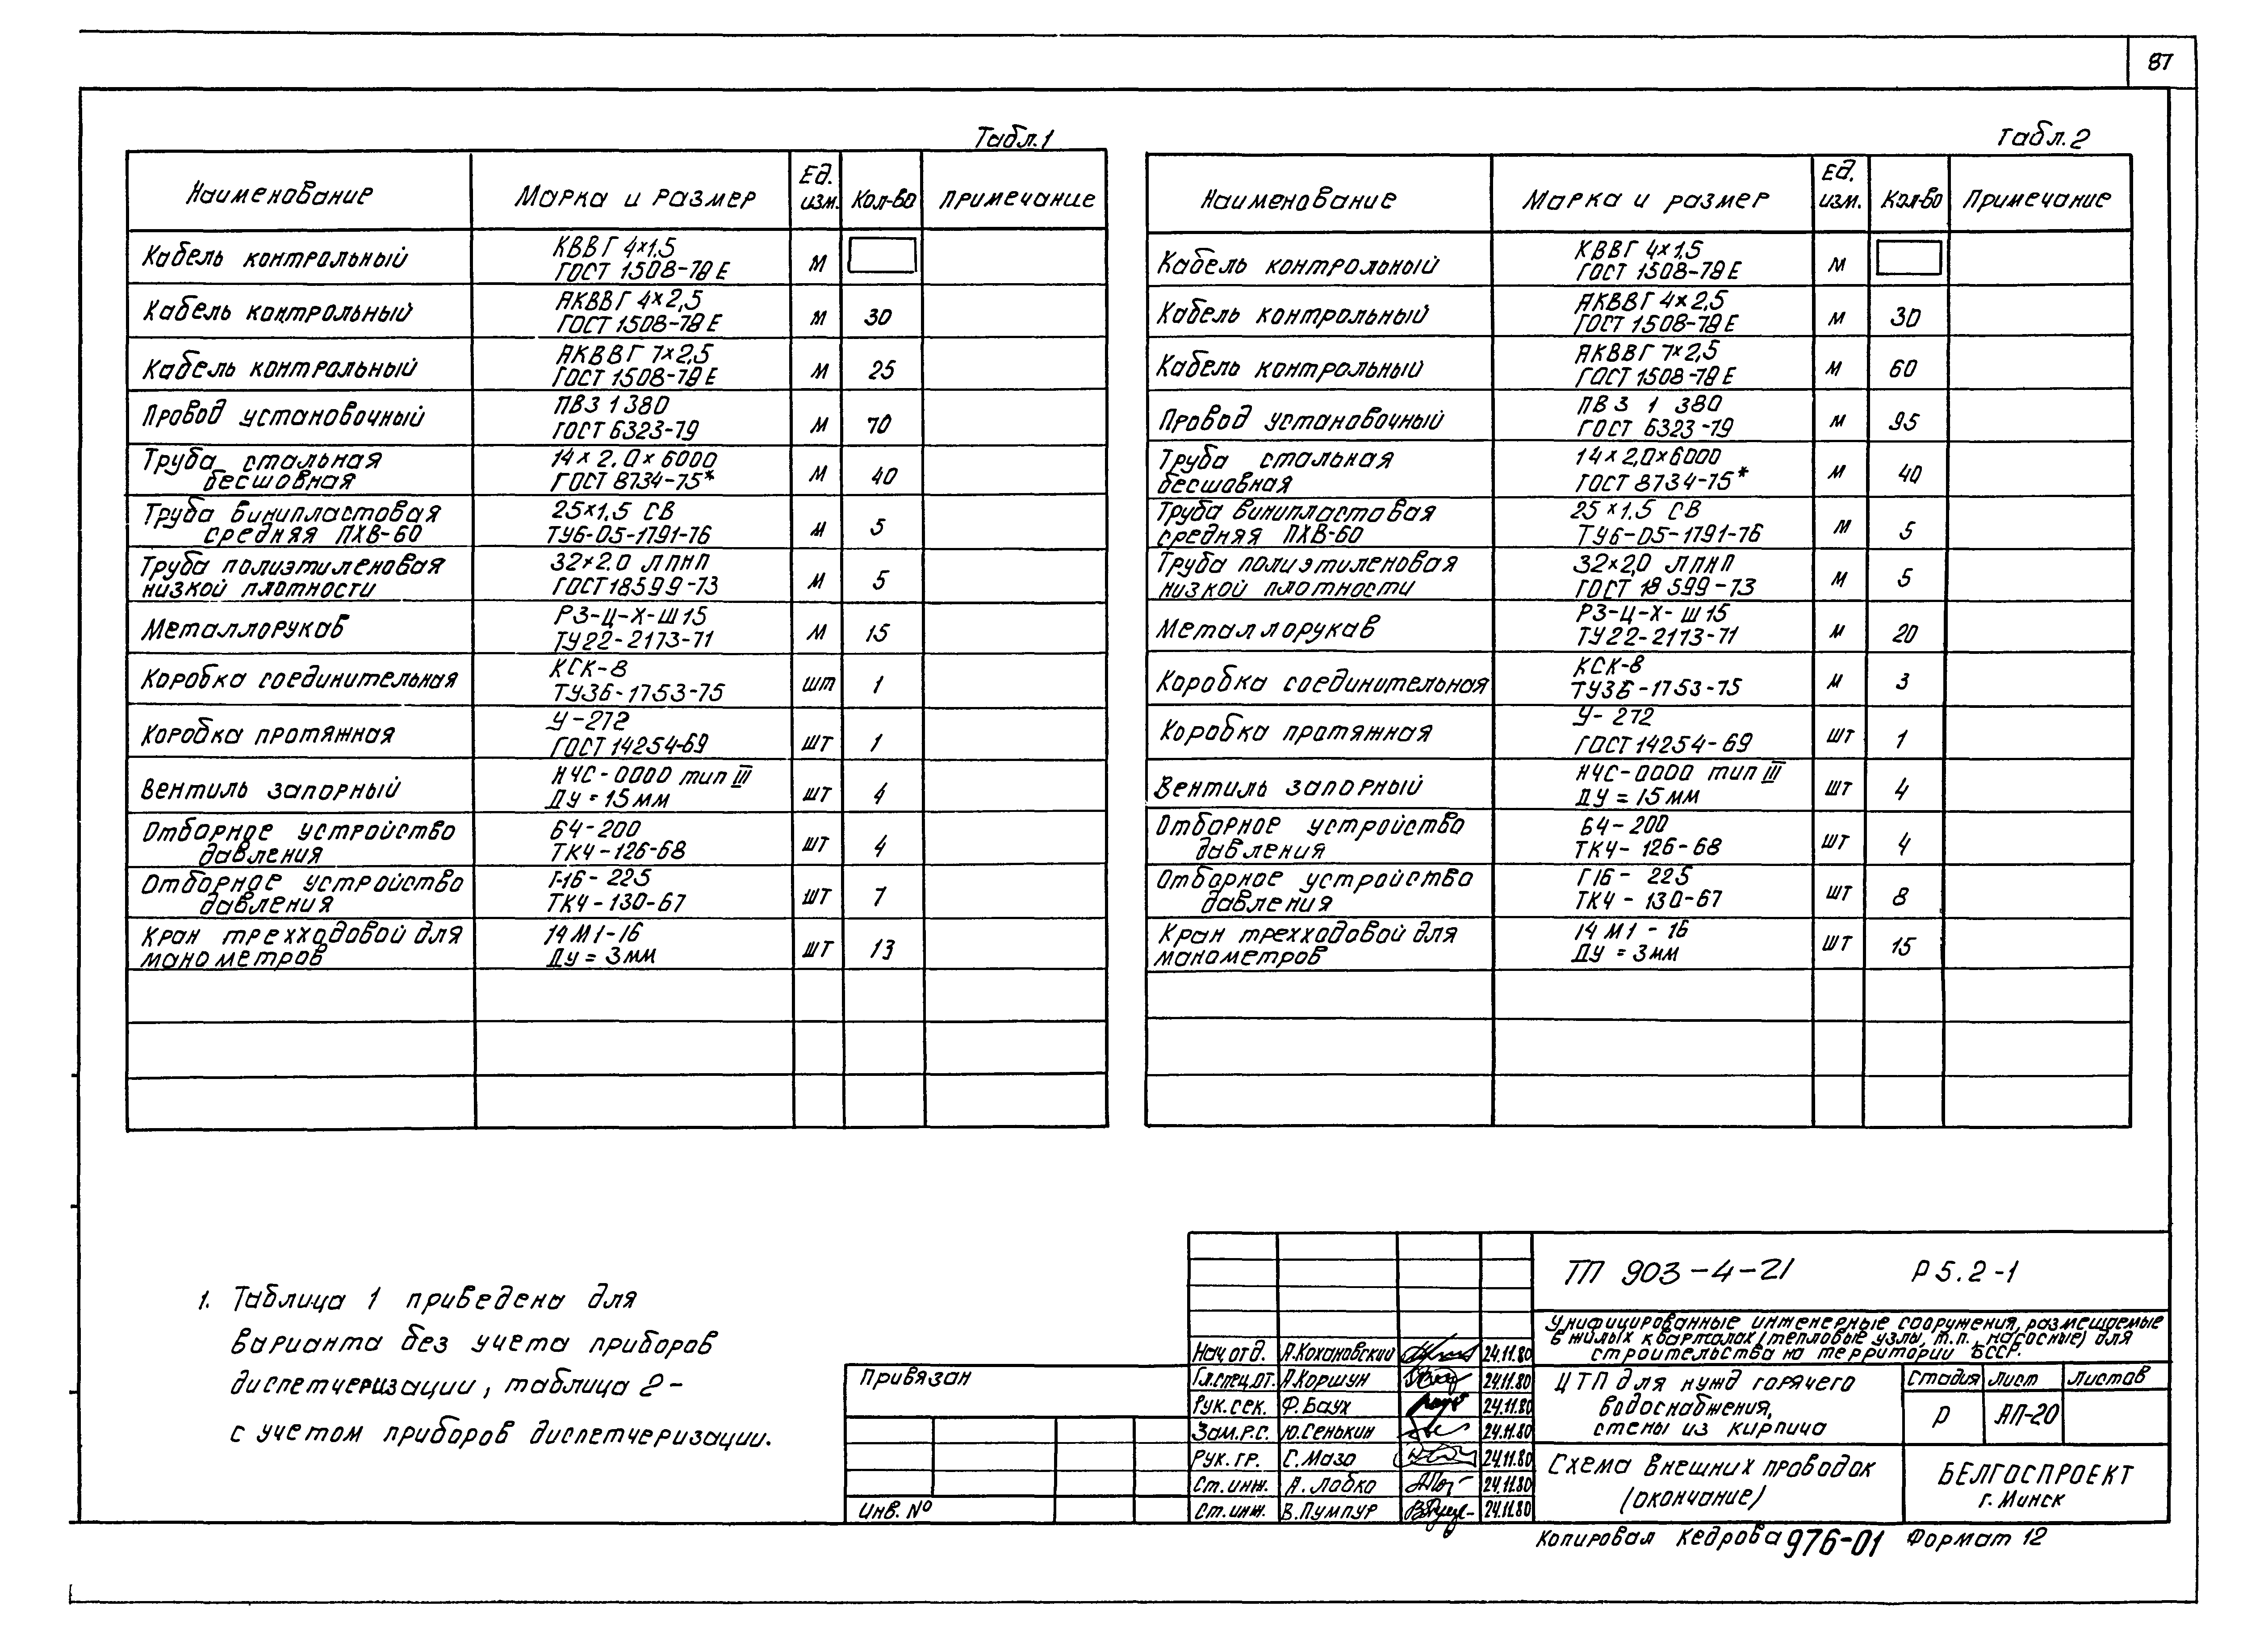 87
Табл.1
Наименование Марка и размер Ед. изм. Кол-во Примечание
Кабель контрольный КВВГ 4×1,5 ГОСТ 1508-78Е м
Кабель контрольный АКВВГ 4×2,5 ГОСТ 1508-78Е м 30
Кабель контрольный АКВВГ 7×2,5 ГОСТ 1508-78Е м 25
Провод установочный ПВ3 1 380 ГОСТ 6323-79 м 70
Труба стальная бесшовная 14×2.0×6000 ГОСТ 8734-75* м 40
Труба винипластовая средняя ПХВ-60 25×1,5 СВ ТУ6-05-1791-76 м 5
Труба полиэтиленовая низкой плотности 32×2.0 ЛПНП ГОСТ 18599-73 м 5
Металлорукав РЗ-Ц-Х-Ш15 ТУ22-2173-71 м 15
Коробка соединительная КСК-8 ТУ36-1753-75 шт 1
Коробка протяжная У-272 ГОСТ 14254-69 шт 1
Вентиль запорный НЧС-0000 тип III ДУ = 15мм шт 4
Отборное устройство давления Б4-200 ТК4-126-68 шт 4
Отборное устройство давления Г16-225 ТК4-130-67 шт 7
Кран трехходовой для манометров 14М1-16 Ду = 3мм шт 13
Табл.2
Наименование Марка и размер Ед. изм. Кол-во Примечание
Кабель контрольный КВВГ 4×1,5 ГОСТ 1508-78Е м
Кабель контрольный АКВВГ 4×2,5 ГОСТ 1508-78Е м 30
Кабель контрольный АКВВГ 7×2,5 ГОСТ 1508-78Е м 60
Провод установочный ПВ3 1 380 ГОСТ 6323-79 м 95
Труба стальная бесшовная 14×2,0×6000 ГОСТ 8734-75* м 40
Труба винипластовая средняя ПХВ-60 25×1.5 СВ ТУ6-05-1791-76 м 5
Труба полиэтиленовая низкой плотности 32×2,0 ЛПНП ГОСТ 18599-73 м 5
Металлорукав РЗ-Ц-Х-Ш15 ТУ22-2173-71 м 20
Коробка соединительная КСК-8 ТУ36-1753-75 м 3
Коробка протяжная У-272 ГОСТ 14254-69 шт 1
Вентиль запорный НЧС-0000 тип III ДУ = 15мм шт 4
Отборное устройство давления Б4-200 ТК4-126-68 шт 4
Отборное устройство давления Г16-225 ТК4-130-67 шт 8
Кран трехходовой для манометров 14М1-16 Ду = 3мм шт 15
1. Таблица 1 приведена для
варианта без учета приборов
диспетчеризации, таблица 2-
с учетом приборов диспетчеризации.
Привязан
Инв. №
Нач.отд. А.Кохановский 24.11.80
Гл.спец.от. А.Коршун 24.11.80
Рук.сек. Ф.Баух 24.11.80
Зам.р.с. Ю.Сенькин 24.11.80
Рук.гр. С.Мазо 24.11.80
Ст.инж. А.Лобко 24.11.80
Ст.инж. В.Пумпур 24.11.80
ТП 903-4-21 Р5.2-1
Унифицированные инженерные сооружения, размещаемые
в жилых кварталах (тепловые узлы, т.п., насосные) для
строительства на территории БССР.
ЦТП для нужд горячего
водоснабжения,
стены из кирпича
Стадия Лист Листов
Р АП-20
Схема внешних проводок
(окончание)
БЕЛГОСПРОЕКТ
г. Минск
Копировал Кедрова 976-01 Формат 12